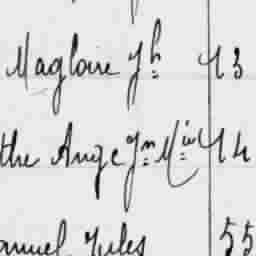 Magloire Jh 43
the Ange Jn Min 44
anuel Jules 55